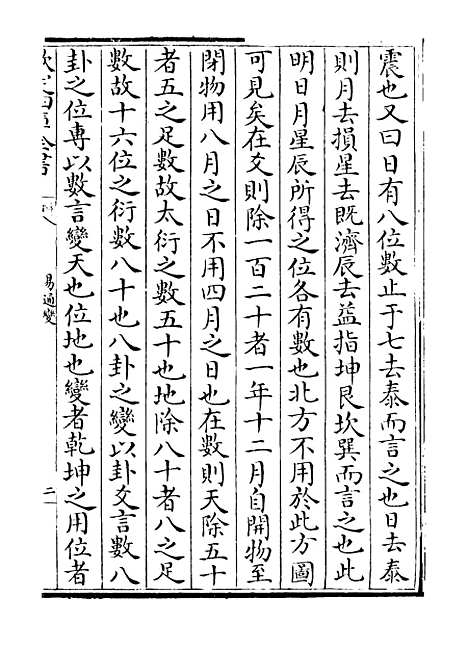 震也又曰日有八位數止于七去泰而言之也日去泰
則月去損星去既濟辰去益指坤艮坎巽而言之也此
明日月星辰所得之位各有數也北方不用於此方圖
可見矣在爻則除一百二十者一年十二月自開物至
閉物用八月之日不用四月之日也在數則天除五十
者五之足數故太衍之數五十也地除八十者八之足
數故十六位之衍數八十也八卦之變以卦爻言數八
卦之位專以數言變天也位地也變者乾坤之用位者
欽定四庫全書
易通變
二